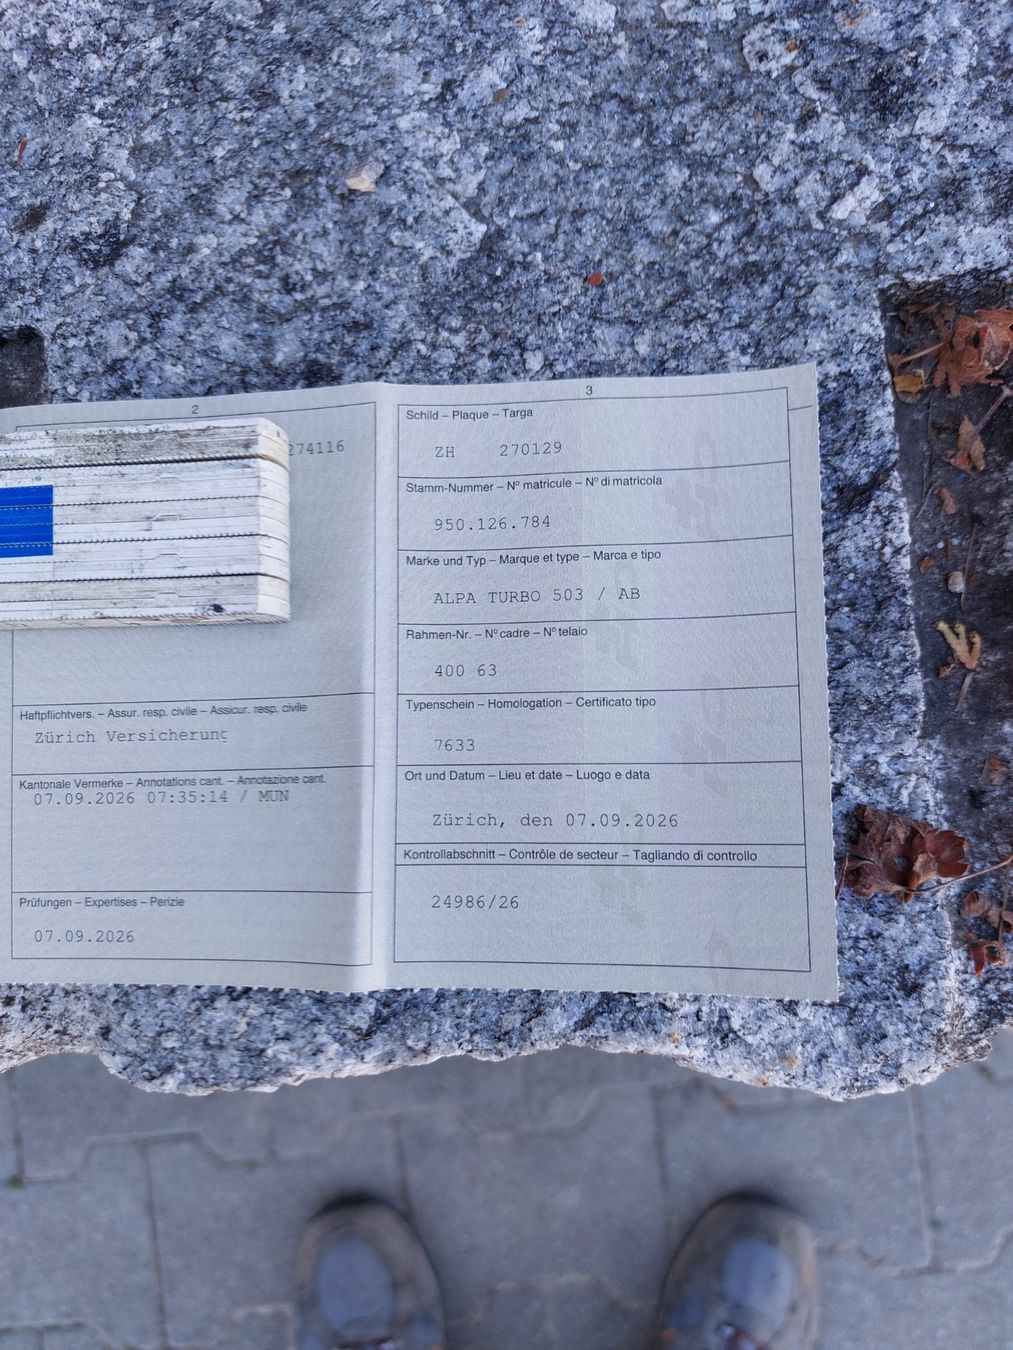 2
274116
Haftpflichtvers. – Assur. resp. civile – Assicur. resp. civile
Zürich Versicherung
Kantonale Vermerke – Annotations cant. – Annotazione cant.
07.09.2026 07:35:14 / MUN
Prüfungen – Expertises – Perizie
07.09.2026
3
Schild – Plaque – Targa
ZH 270129
Stamm-Nummer – Nº matricule – Nº di matricola
950.126.784
Marke und Typ – Marque et type – Marca e tipo
ALPA TURBO 503 / AB
Rahmen-Nr. – Nº cadre – Nº telaio
400 63
Typenschein – Homologation – Certificato tipo
7633
Ort und Datum – Lieu et date – Luogo e data
Zürich, den 07.09.2026
Kontrollabschnitt – Contrôle de secteur – Tagliando di controllo
24986/26